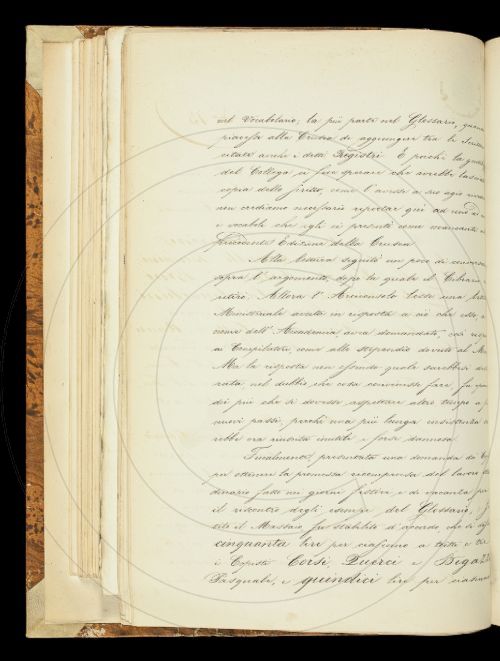 nel Vocabolario; la più parte nel Glossario,
piacesse alla Crusca di aggiungere tra le
citate anche i detti Registri. E poichè la
del Collega ci fece sperare che avrebbe
copia dello scritto, come l'avesse a suo agio
non crediamo necessario riportar qui ad uno
e vocaboli che egli ci presentò come mancanti
precedente Edizione della Crusca
Alla lettura seguitò un poco di
sopra l'argomento, dopo la quale il Cibrario
ritirò. Allora l'Arciconsolo lesse una
Ministeriale avuta in risposta a ciò che esso, a
nome dell'Accademia, avea domandato, così
ai Compilatori, come allo stipendio dovuto al
Ma la risposta non essendo quale sarebbesi
rata, nel dubbio che cosa convenisse fare, fu
dai più che si dovesse aspettare altro tempo a
nuovi passi, perchè una più lunga insistenza
rebbe ora riuscita inutile e forse dannosa.
Finalmente, presentata una domanda
per ottenere la promessa ricompensa del lavoro
dinario fatto nei giorni festivi e di vacanza
il riscontro degli esempi del Glossario,
il Massaio, fu stabilito d'accordo che si
cinquanta lire per ciascuno a tutti e tre
i Copisti Corsi, Querci e
Pasquale, e quindici lire per